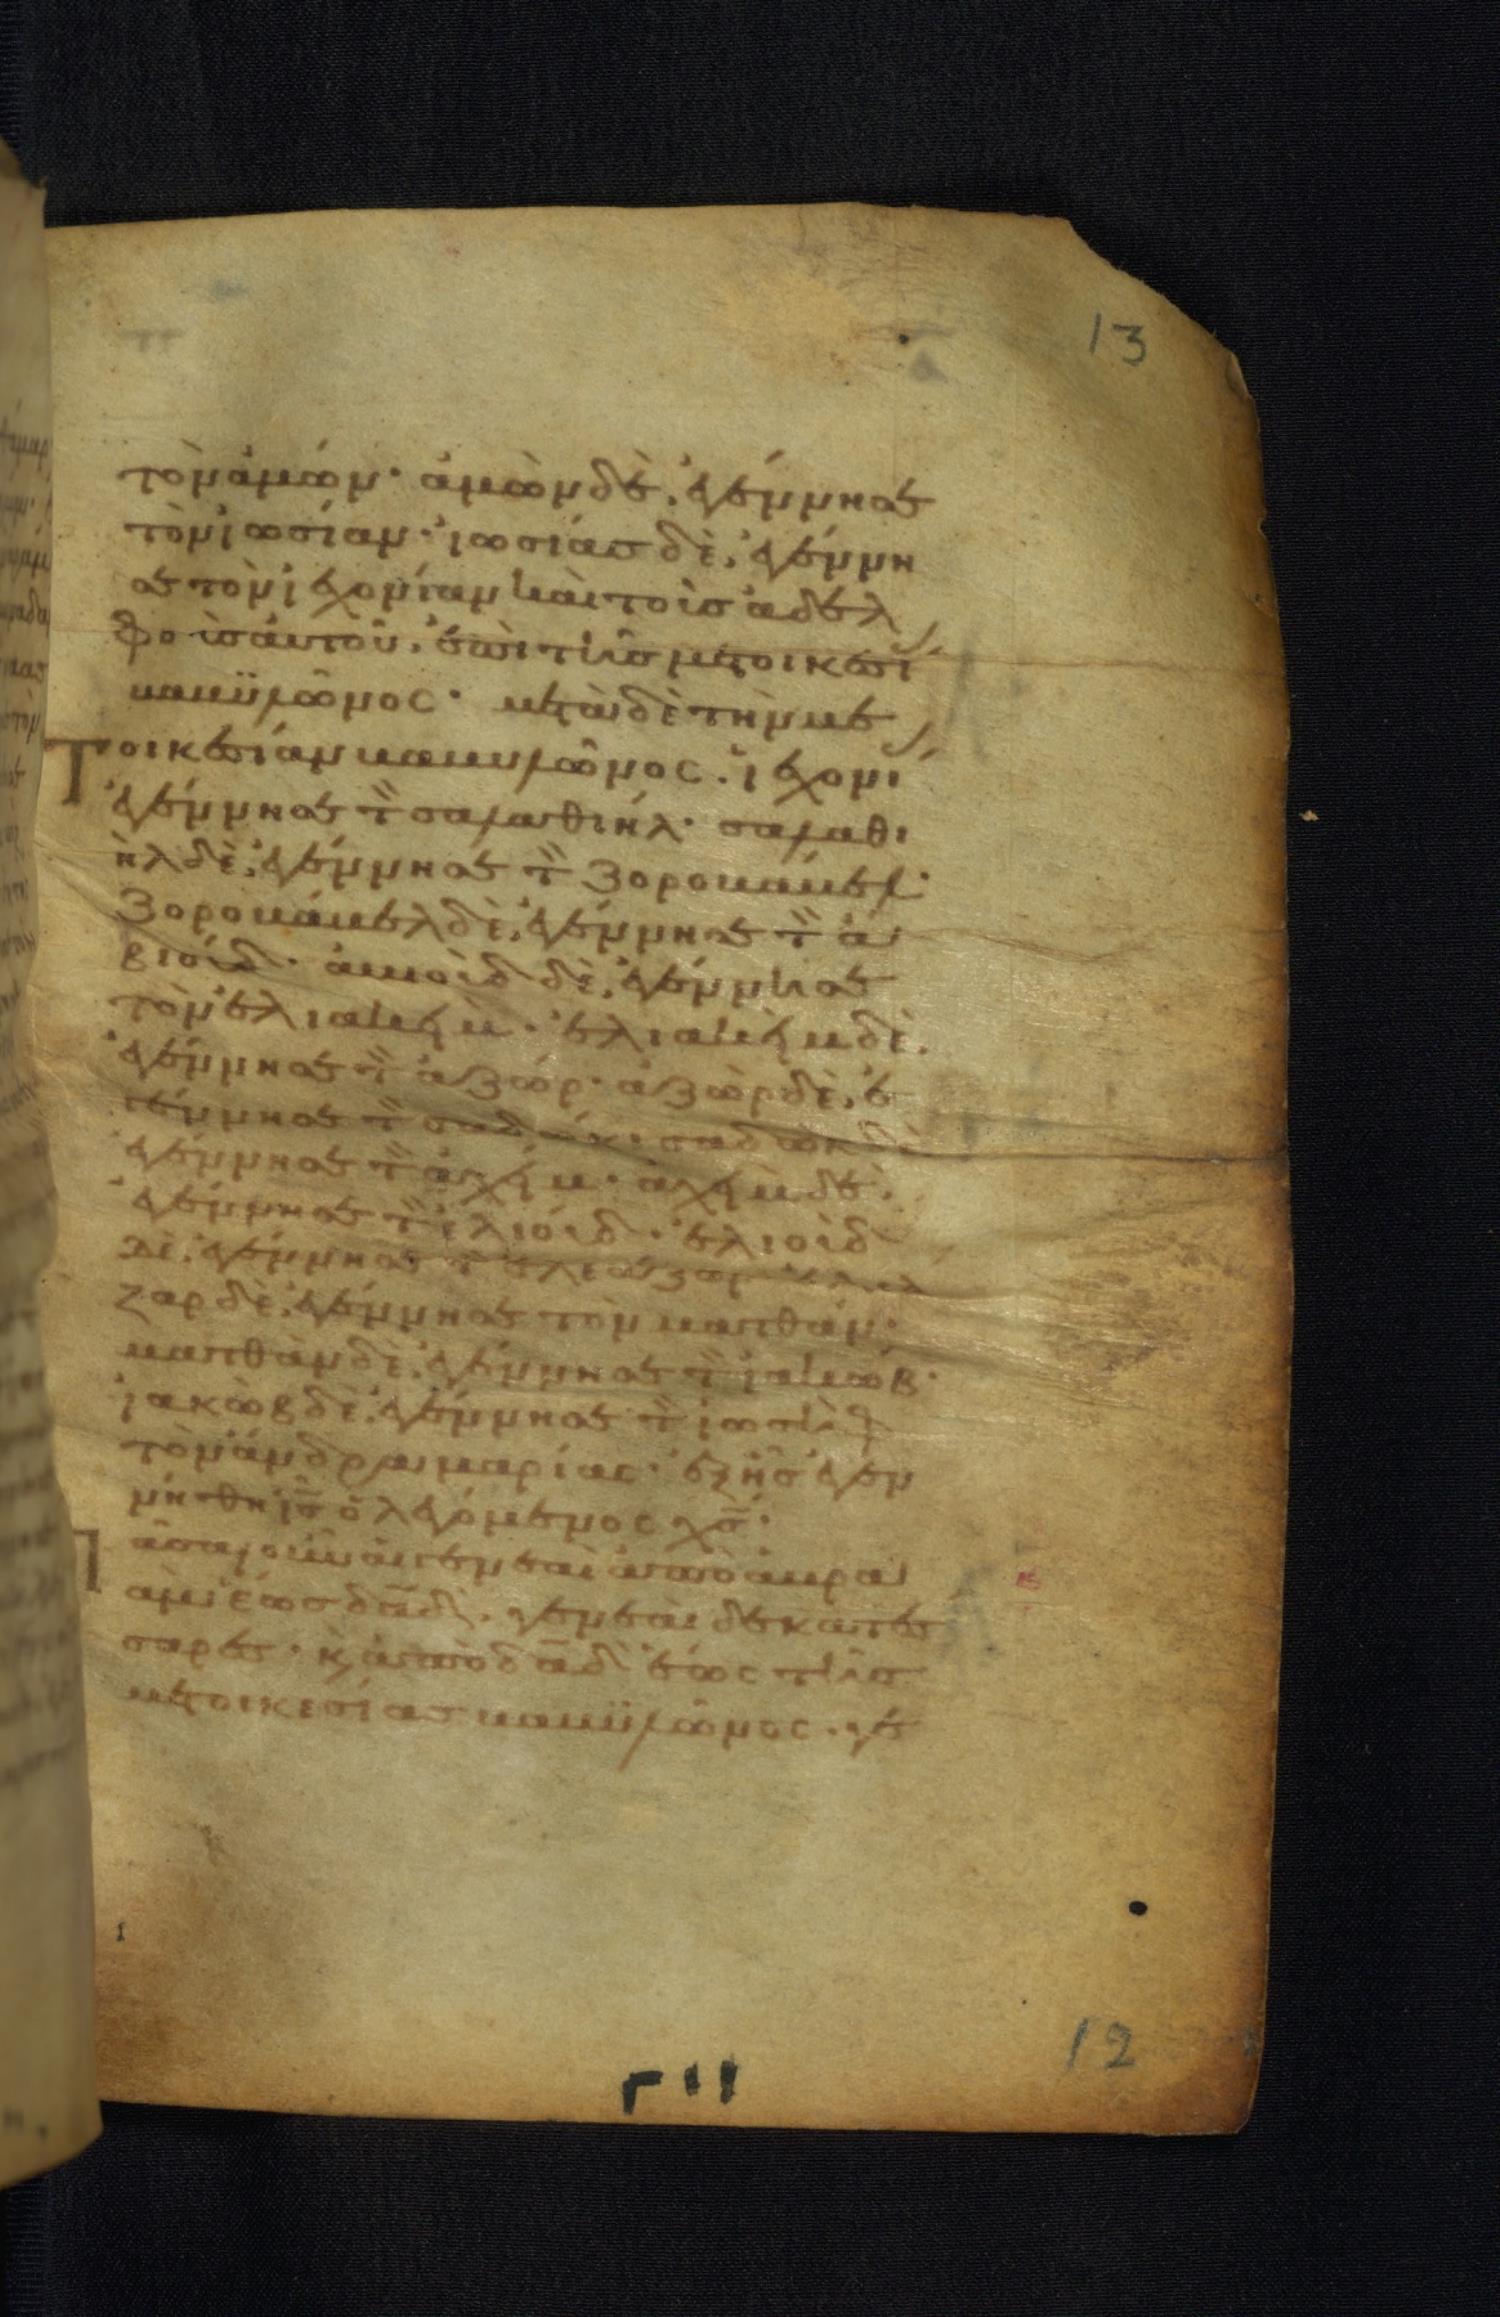 13
τὸν ἀμών· ἀμὼν δὲ, ἐγέννησε
τὸν ἰωσίαν· ἰωσίας δὲ, ἐγέννη
σε τὸν ἰεχονίαν καὶ τοὶς ἀδελ
φοὶς ἀυτοῦ, ἐπὶ τῆς μετοικεσί
βαβυλῶνος· μετὰ δὲ τὴν με
τοικεσίαν βαβυλῶνος. ἰεχονί
ἐγέννησε τ̀ σαλαθιήλ· σαλαθι
ὴλ δὲ, ἐγέννησε τ̀ ζοροβάβελ·
ζοροβάβελ δὲ, ἐγέννησε τ̀ ἀ
βιοίδ· ἀβιοὶδ δὲ, ἐγέννησε
τὸν ἐλιακήμ· ἐλιακὴμ δὲ,
ἐγέννησε τ̀ ἀζώρ· ἀζὼρ δὲ, ἐ
γέννησε τ̀ σαδώκ· σαδὼκ δὲ
ἐγέννησε τ̀ ἀχήμ· ἀχὴμ δὲ,
ἐγέννησε τ̀ ἐλιοίδ· ἐλιοὶδ
δὲ, ἐγέννησε τ̀ ἐλεάζαρ
ζαρ δὲ, ἐγέννησε τὸν ματθάν·
ματθὰν δὲ, ἐγέννησε τ̀ ἰακώβ·
ἰακὼβ δὲ, ἐγέννησε τ̀ ἰωσὴφ
τὸν ἄνδρα μαρίας· ἐξ ἧς ἐγεν
νήθη ις̅ ὁ λεγόμενος χς̅·
Πᾶσαι οὖν ἁι γενεαὶ ἀπὸ ἀβρα
ὰμ ἕως δα̅δ, γενεαὶ δεκατέσ
σαρες· κ̀ ἀπὸ δα̅δ ἕως τῆς
μετοικεσίας βαβυλῶνος. γε
12